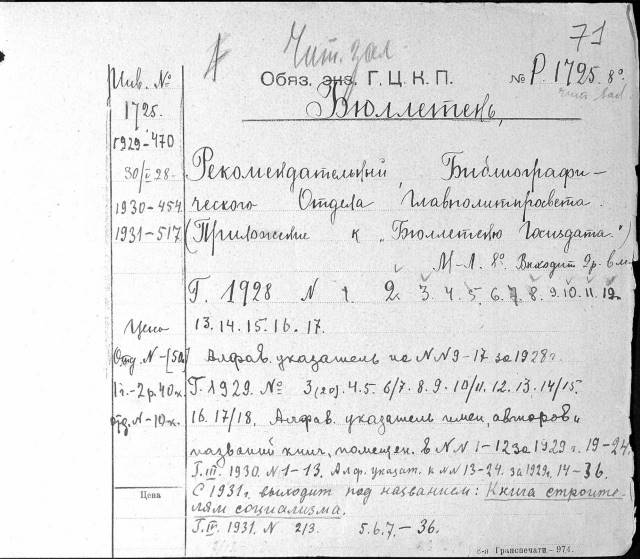 Чит. зал 71
Обяз. экз. Г.Ц.К.П. № Р. 1725. 8°.
Инв. №
1725.
1929-470
30/V 28-
1930-454
1931-517
Бюллетень,
Рекомендательный Библиографи-
ческого Отдела Главполитпросвета.
(Приложение к „Бюллетеню Госиздата".)
М-Л. 8°. Выходит 2 р. в м.
Г. 1928 N 1. 2. 3. 4. 5. 6. 7. 8. 9. 10. 11. 12.
13. 14. 15. 16. 17.
Цена
Отд. N-
1 г.-2 р. 40 к.
отд. N-10 к.
Алфав. указатель по NN 9-17 за 1928 г.
Г. 1929. № 3(20). 4. 5. 6/7. 8. 9. 10/11. 12. 13. 14/15.
16. 17/18. Алфав. указатель имен, авторов и
названий книг, помещен. в NN 1-12 за 1929 г. 19-24.
Г. III. 1930. N 1-13. Алф. указат. к NN 13-24. за 1929 г. 14-36.
С 1931 г. выходит под названием: Книга строите-
лям социализма.
Г. IV. 1931. N 2/3. 5. 6. 7.-36.
Цена
6-я Гранспечати - 974.